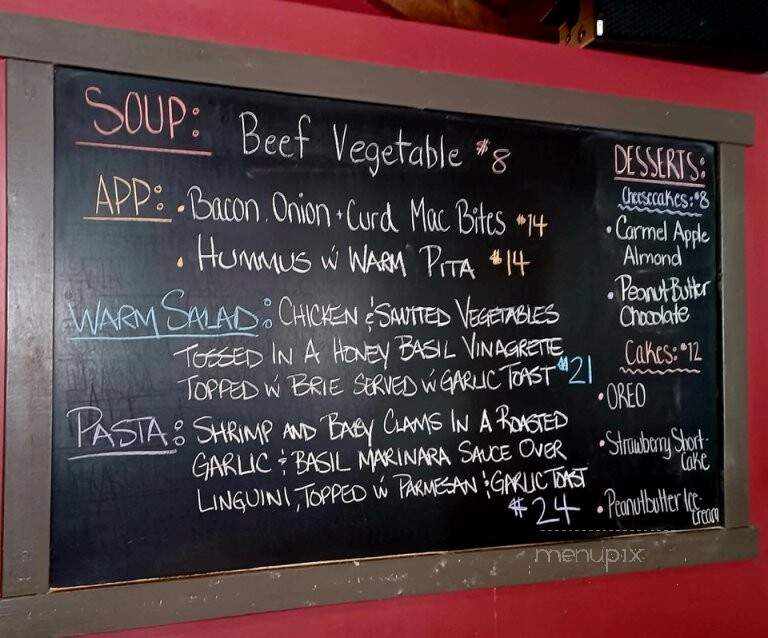 SOUP: Beef Vegetable $8
APP: • Bacon, Onion + Curd Mac Bites $14
• HUMMUS W/ WARM PITA $14
WARM SALAD: CHICKEN & SAUTTED VEGETABLES
TOSSED IN A HONEY BASIL VINAGRETTE
TOPPED W/ BRIE SERVED W/ GARLIC TOAST $21
PASTA: SHRIMP AND BABY CLAMS IN A ROASTED
GARLIC & BASIL MARINARA SAUCE OVER
LINGUINI, TOPPED W/ PARMESAN & GARLIC TOAST
$24
DESSERTS:
Cheesecakes: $8
• Carmel Apple
Almond
• Peanut Butter
Chocolate
Cakes: $12
• OREO
• Strawberry Short-
cake
• Peanutbutter Ice-
cream
menupix